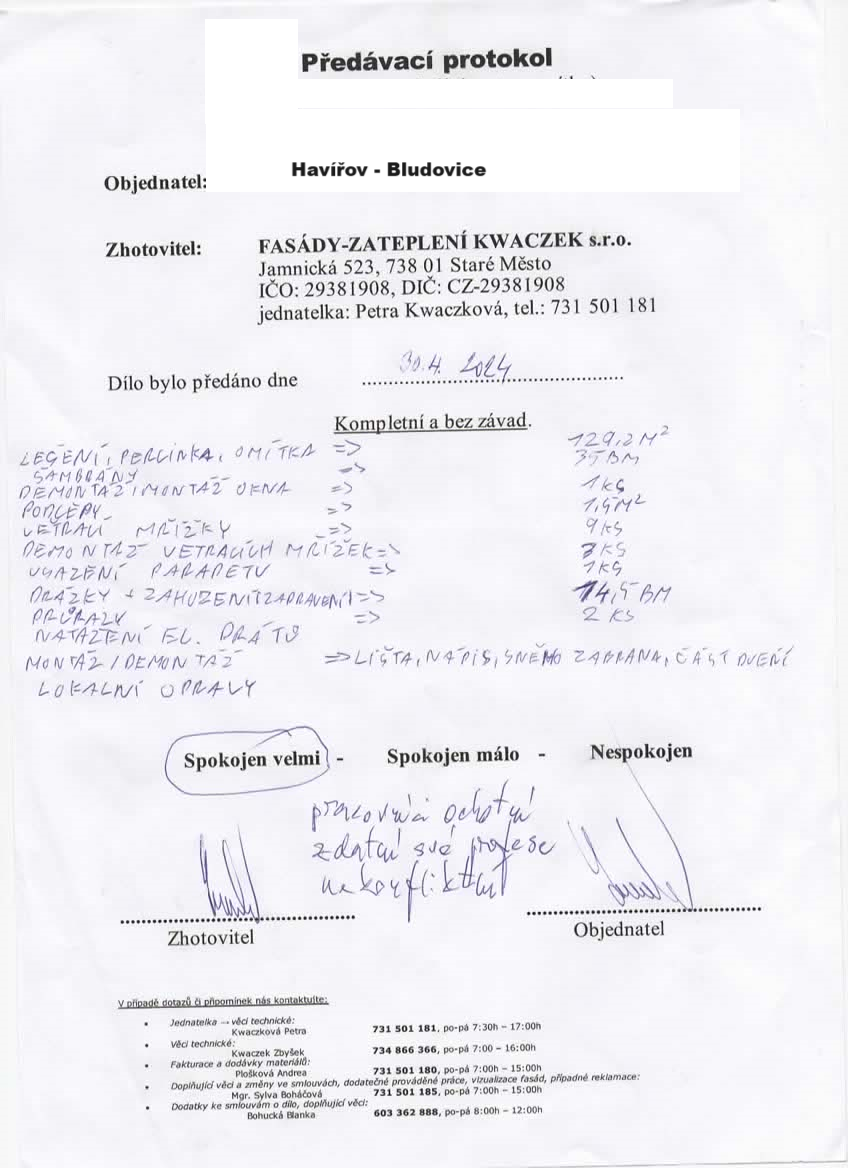 Předávací protokol
Objednatel:
Havířov - Bludovice
Zhotovitel:
FASÁDY-ZATEPLENÍ KWACZEK s.r.o.
Jamnická 523, 738 01 Staré Město
IČO: 29381908, DIČ: CZ-29381908
jednatelka: Petra Kwaczková, tel.: 731 501 181
Dílo bylo předáno dne 30.4. 2024
Kompletní a bez závad.
LEŠENÍ, PERLINKA, OMÍTKA => 129,2 M²
ŠAMBRÁNY => 35 BM
DEMONTÁŽ/MONTÁŽ OKNA => 1KS
PODLEPY => 1,5M²
VĚTRACÍ MŘÍŽKY => 9KS
DEMONTÁŽ VETRACÍCH MŘÍŽEK => KS
USAZENÍ PARAPETU => 1KS
DRÁŽKY + ZAHOZENÍ (ZAPRAVENÍ) => 14,5 BM
PRŮRAZY => 2 KS
NATAŽENÍ EL. DRÁTŮ
MONTÁŽ/DEMONTÁŽ => LIŠTA, NÁPIS, SNĚHO ZÁBRANA, ČÁST DVEŘÍ
LOKALNÍ OPRAVY
Spokojen velmi - Spokojen málo - Nespokojen
pracovníci ochotní
zdatní své profese
nekonfliktní
Zhotovitel
Objednatel
V případě dotazů či připomínek nás kontaktujte:
• Jednatelka → věci technické:
Kwaczková Petra 731 501 181, po-pá 7:30h – 17:00h
• Věci technické:
Kwaczek Zbyšek 734 866 366, po-pá 7:00 – 16:00h
• Fakturace a dodávky materiálů:
Plošková Andrea 731 501 180, po-pá 7:00h – 15:00h
• Doplňující věci a změny ve smlouvách, dodatečné prováděné práce, vizualizace fasád, případné reklamace:
Mgr. Sylva Boháčová 731 501 185, po-pá 7:00h – 15:00h
• Dodatky ke smlouvám o dílo, doplňující věci:
Bohucká Blanka 603 362 888, po-pá 8:00h – 12:00h